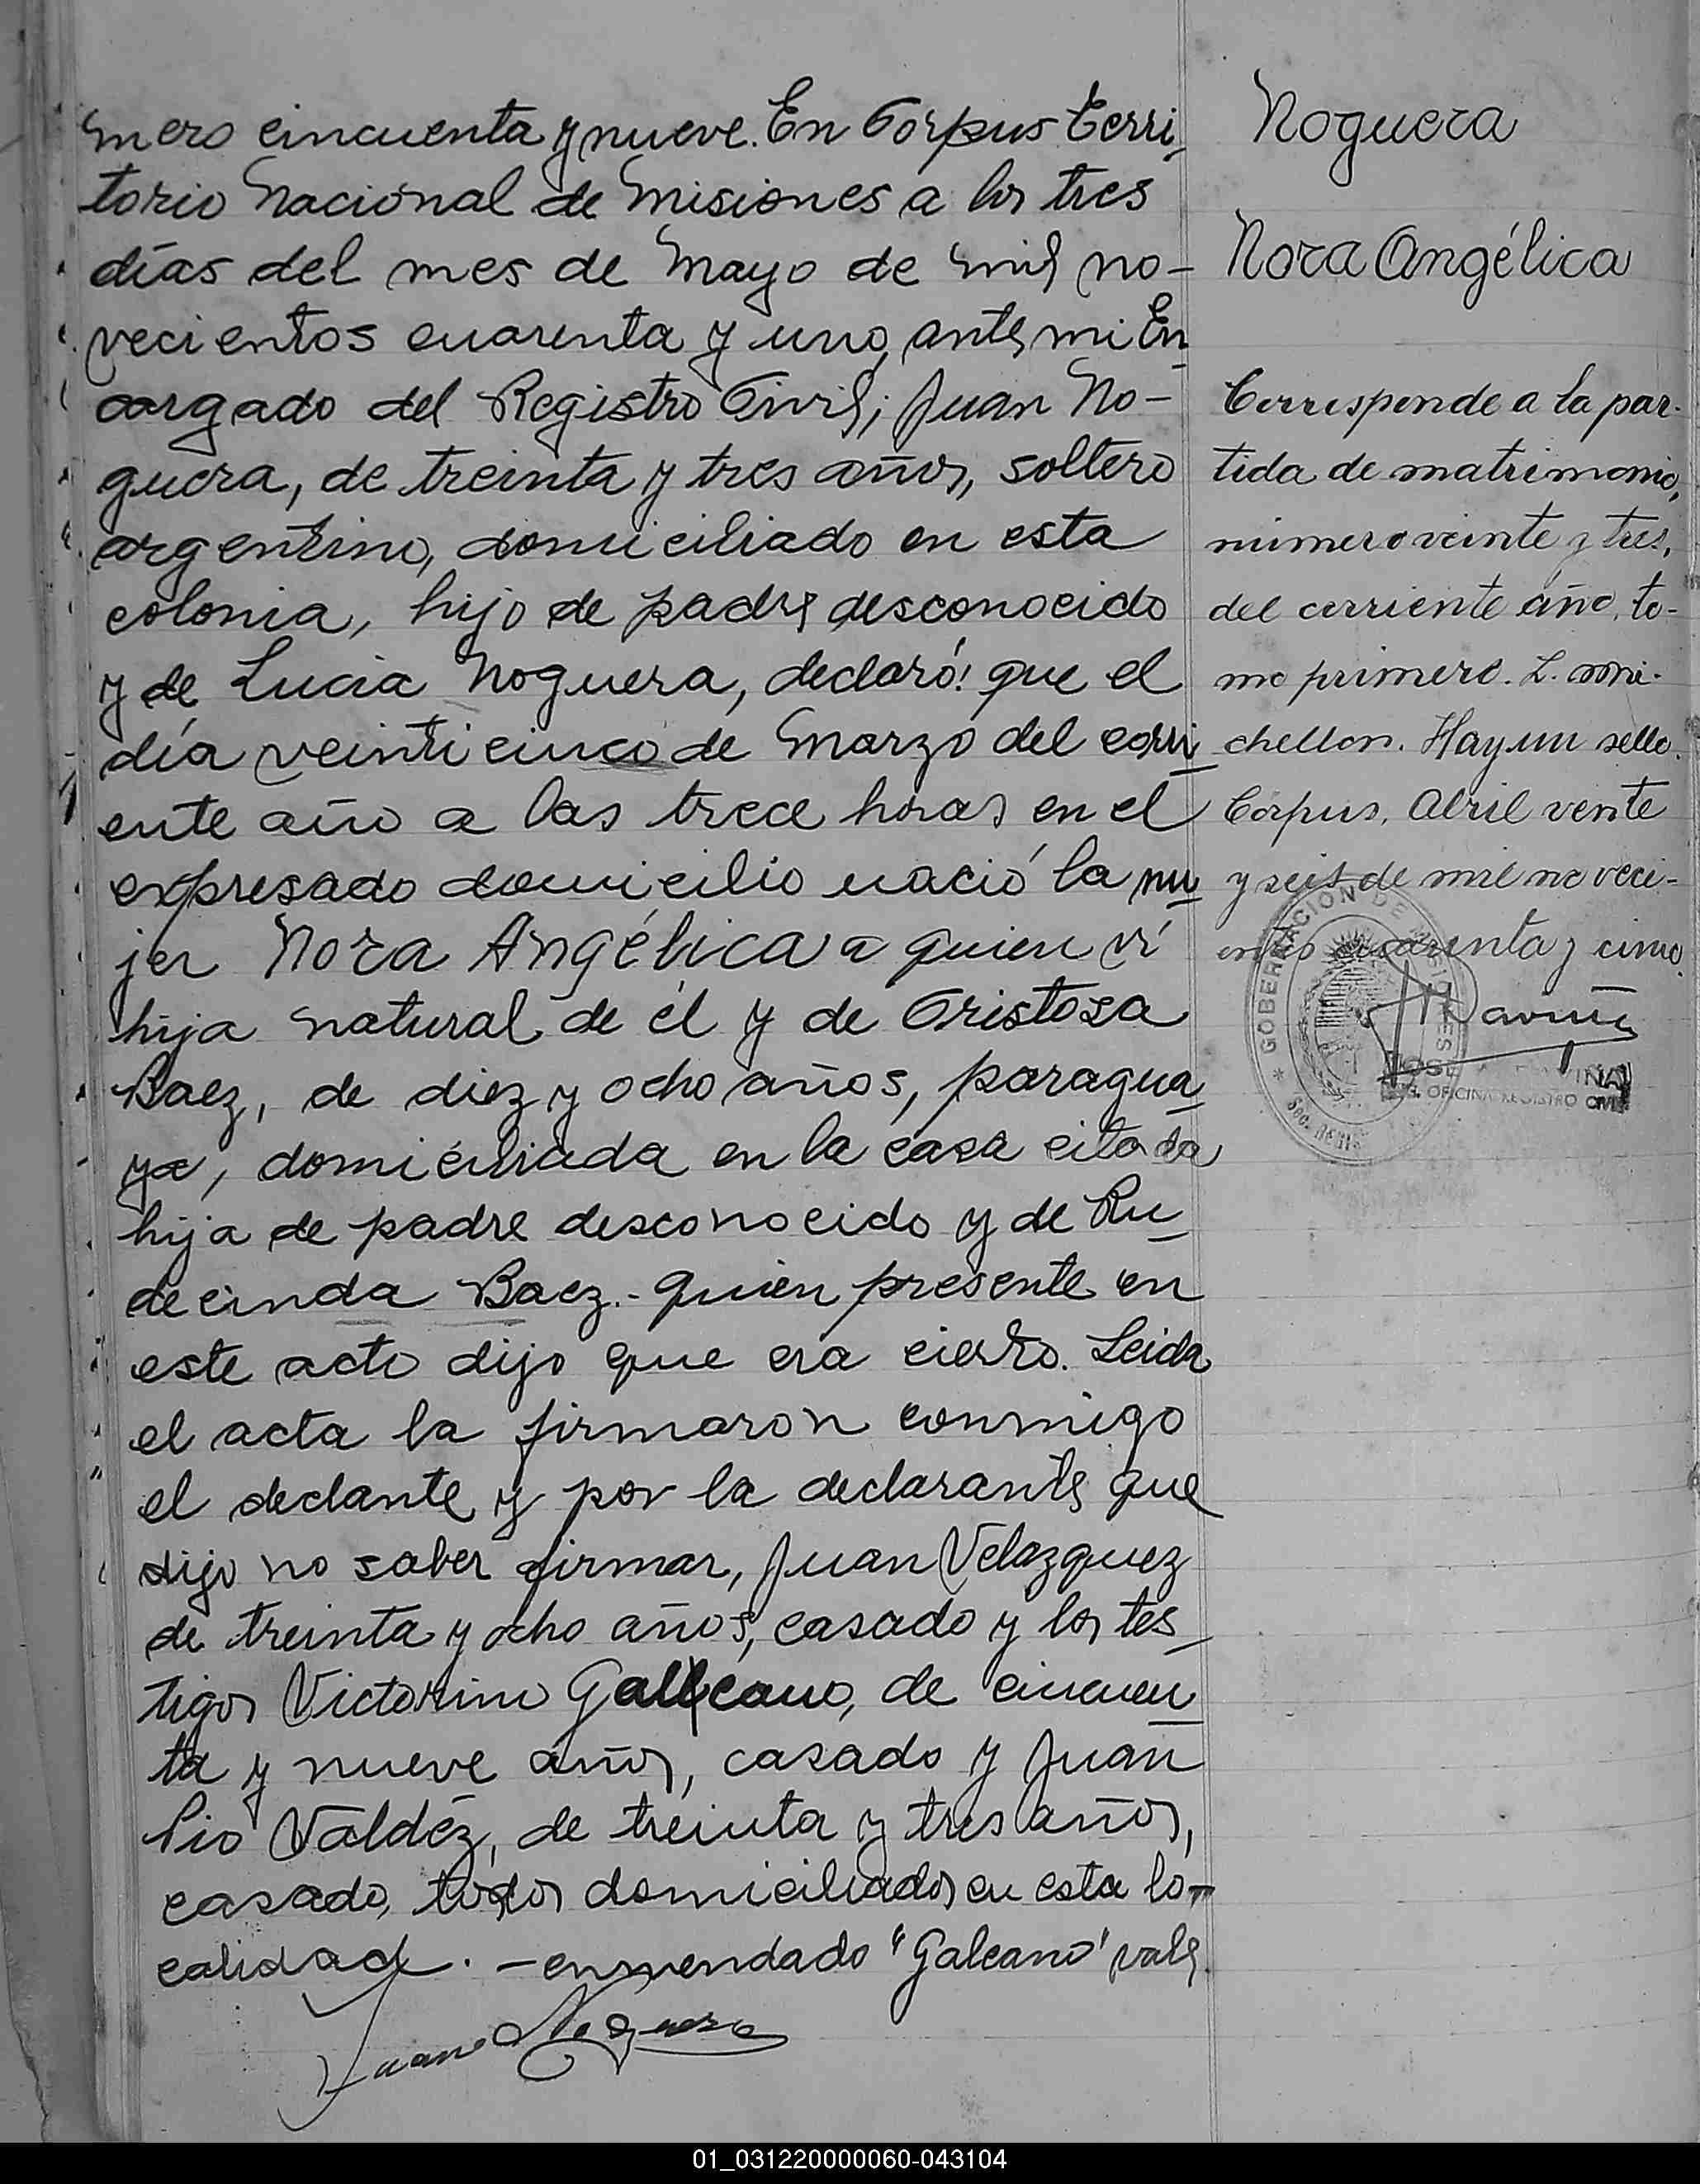 mero cincuenta y nueve. En Corpus Terri
torio Nacional de Misiones a los tres
días del mes de Mayo de mil no-
vecientos cuarenta y uno, ante mi En
cargado del Registro Civil; Juan No-
guera, de treinta y tres años, soltero
argentino, domiciliado en esta
colonia, hijo de padre desconocido
y de Lucia Noguera, declaró: que el
día veinticinco de Marzo del corri
ente año a las trece horas en el
expresado domicilio nació la mu
jer Nora Angélica a quien ví
hija natural de él y de Cristosa
Baez, de diez y ocho años, paragua
ya, domiciliada en la casa citada
hija de padre desconocido y de Ru
decinda Baez.- quien presente en
este acto dijo que era cierto. Leida
el acta la firmaron conmigo
el declante y por la declarante que
dijo no saber firmar, Juan Velazquez
de treinta y ocho años, casado y los tes
tigos Victorino Galeano, de cincuen
ta y nueve años, casado y Juan
Pio Valdéz, de treinta y tres años,
casado, todos domiciliados en esta lo-
calidad. - enmendado "Galeano" vale.
Juan Noguera
Noguera
Nora Angélica
Corresponde a la par-
tida de matrimonio,
número veinte y tres,
del corriente año, to-
mo primero. L.
Hay un sello.
Corpus, Abril veinte
y seis de mil noveci-
entos cuarenta y cinco.
GOBERNACION DE MISIONES
JOSE
OFICINA REGISTRO CIVIL
01_031220000060-043104